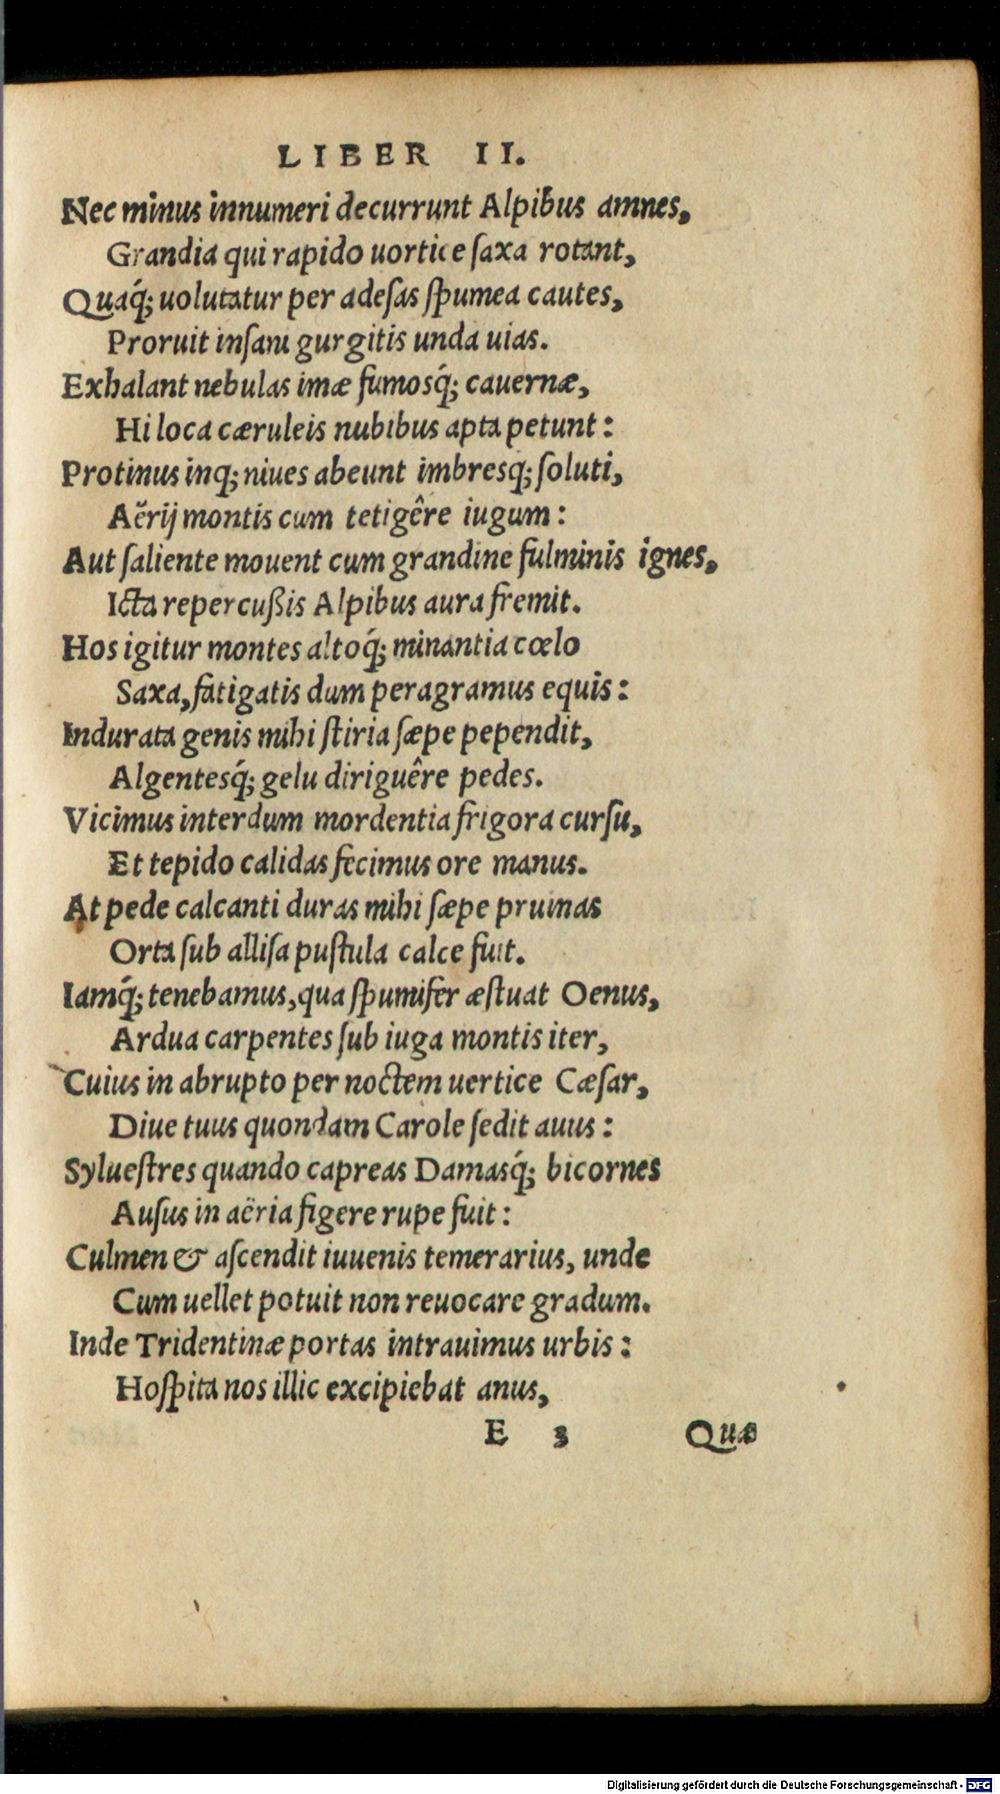 LIBER II.
Nec minus innumeri decurrunt Alpibus amnes,
Grandia qui rapido uortice ſaxa rotant,
Quaq́; uolutatur per adeſas ſpumea cautes,
Proruit inſani gurgitis unda uias.
Exhalant nebulas imæ fumosq́; cauernæ,
Hi loca cæruleis nubibus apta petunt:
Protinus inq; niues abeunt imbresq; ſoluti,
Aërij montis cum tetigêre iugum:
Aut ſaliente mouent cum grandine fulminis ignes,
Icta repercußis Alpibus aura fremit.
Hos igitur montes altoq́; minantia cœlo
Saxa, fatigatis dum peragramus equis:
Indurata genis mihi ſtiria ſæpe pependit,
Algentesq́; gelu diriguêre pedes.
Vicimus interdum mordentia frigora curſu,
Et tepido calidas fecimus ore manus.
At pede calcanti duras mihi ſæpe pruinas
Orta ſub alliſa puſtula calce fuit.
Iamq́; tenebamus, qua ſpumifer æſtuat Oenus,
Ardua carpentes ſub iuga montis iter,
Cuius in abrupto per noctem uertice Cæſar,
Diue tuus quondam Carole ſedit auus:
Sylueſtres quando capreas Damasq́; bicornes
Auſus in aëria figere rupe fuit:
Culmen & aſcendit iuuenis temerarius, unde
Cum uellet potuit non reuocare gradum.
Inde Tridentinæ portas intrauimus urbis:
Hoſpita nos illic excipiebat anus,
E 3 Quæ
Digitalisierung gefördert durch die Deutsche Forschungsgemeinschaft - DFG